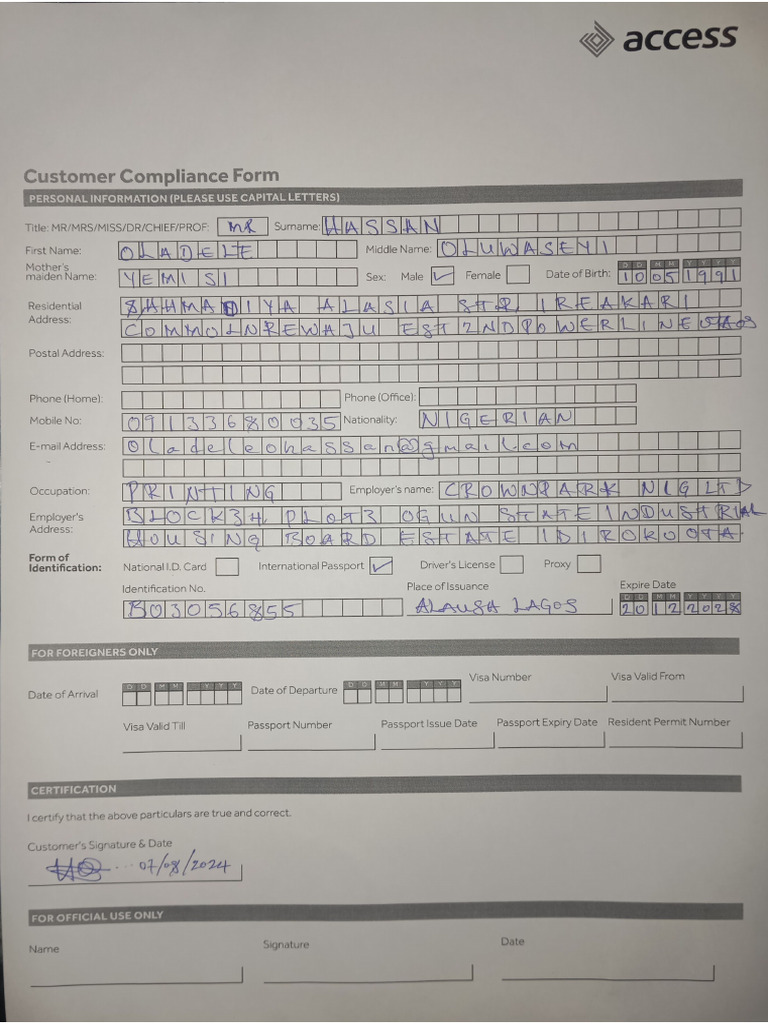 access
Customer Compliance Form
PERSONAL INFORMATION (PLEASE USE CAPITAL LETTERS)
Title: MR/MRS/MISS/DR/CHIEF/PROF: MR Surname: HASSAN
First Name: OLADELE Middle Name: OLUWASEYI
Mother's maiden Name: YEMISI Sex: Male ✓ Female Date of Birth: DD MM YYYY 10051991
Residential Address: 8, AHMADIYA ALASIA STR, IREAKARI
COMMOLNREWAJU EST 2NDPOWERLINE
Postal Address:
Phone (Home): Phone (Office):
Mobile No: 09133680035 Nationality: NIGERIAN
E-mail Address: Oladeleohassan@gmail.com
Occupation: PRINTING Employer's name: CROWNPARK NIG LTD
Employer's Address: BLOCK34 PLOT3 OGUN STATE INDUSTRIAL
HOUSING BOARD ESTATE IDIROKO OTA.
Form of Identification: National I.D. Card International Passport ✓ Driver's License Proxy
Identification No. Place of Issuance Expire Date
B03056855 ALAUSA LAGOS DD MM YYYY 20122028
FOR FOREIGNERS ONLY
Date of Arrival DD MM YYY Date of Departure DD MM YYY Visa Number Visa Valid From
Visa Valid Till Passport Number Passport Issue Date Passport Expiry Date Resident Permit Number
CERTIFICATION
I certify that the above particulars are true and correct.
Customer's Signature & Date
07/08/2024
FOR OFFICIAL USE ONLY
Name Signature Date